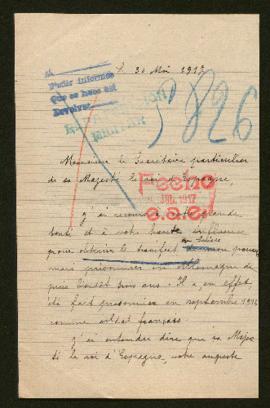 Pedir informes
que se hace así
Devolver
le 30 Mai 1917
5826
Monsieur le Secrétaire particulier
de sa Majesté le roi d'Espagne,
Fecho
JUL. 1917
J'ai recours à votre grande
bonté et à votre haute influence
en Suisse
pour obtenir le transfert
mari prisonnier en Allemagne de
puis bientôt trois ans. Il a, en effet,
été fait prisonnier en septembre 1914
comme soldat français.
J'ai entendu dire que sa Majes
té le roi d'Espagne, votre auguste